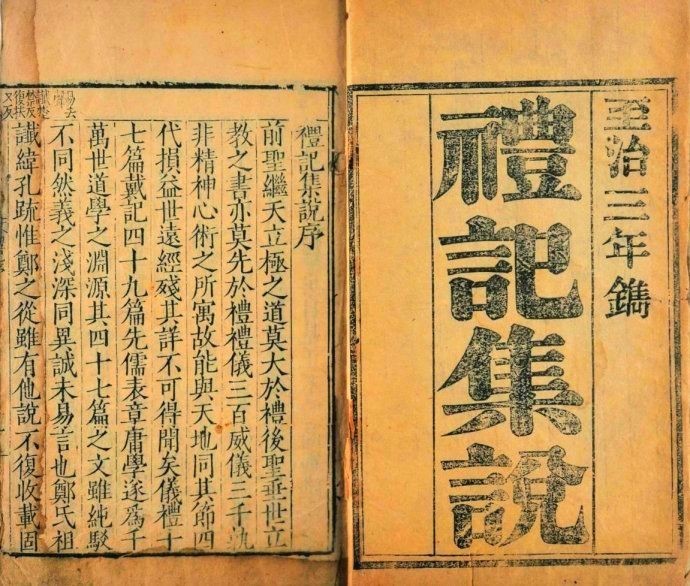 至治三年鐫
禮記集說
禮記集說序
前聖繼天立極之道莫大於禮後聖垂世立
教之書亦莫先於禮禮儀三百威儀三千孰
非精神心術之所寓故能與天地同其節四
代損益世遠經殘其詳不可得聞矣儀禮十
七篇戴記四十九篇先儒表章庸學遂爲千
萬世道學之淵源其四十七篇之文雖純駁
不同然義之淺深同異誠未易言也鄭氏祖
讖緯孔疏惟鄭之從雖有他說不復收載固